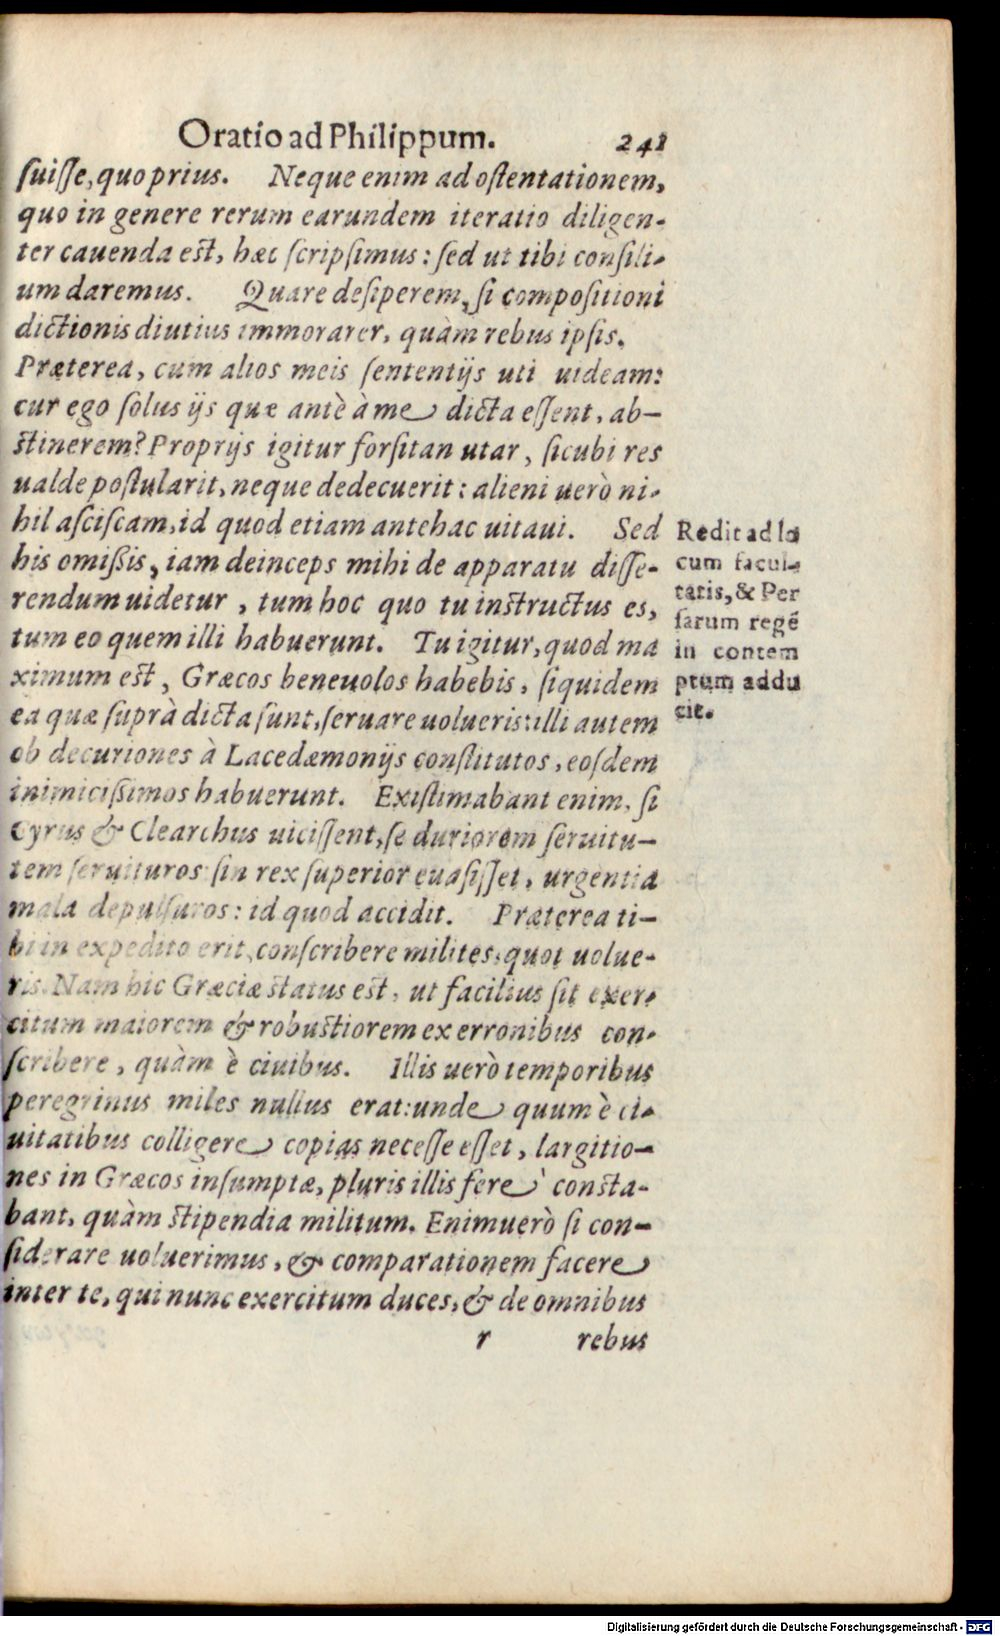 Oratio ad Philippum. 241
fuisse, quo prius. Neque enim ad ostentationem,
quo in genere rerum earundem iteratio diligen-
ter cauenda est, hæc scripsimus: sed ut tibi consili-
um daremus. Quare desiperem, si compositioni
dictionis diutius immorarer, quàm rebus ipsis.
Præterea, cum alios meis sententijs uti uideam:
cur ego solus ijs quæ antè à me dicta essent, ab-
stinerem? Proprijs igitur forsitan utar, sicubi res
ualde postularit, neque dedecuerit: alieni uerò ni-
hil asciscam, id quod etiam antehac uitaui. Sed
his omissis, iam deinceps mihi de apparatu disse-
rendum uidetur, tum hoc quo tu instructus es,
tum eo quem illi habuerunt. Tu igitur, quod ma
ximum est, Græcos beneuolos habebis, siquidem
ea quæ suprà dicta sunt, seruare uolueris: illi autem
ob decuriones à Lacedæmonijs constitutos, eosdem
inimicissimos habuerunt. Existimabant enim, si
Cyrus & Clearchus uicissent, se duriorem seruitu-
tem seruituros: sin rex superior euasisset, urgentia
mala depulsuros: id quod accidit. Præterea ti-
bi in expedito erit, conscribere milites, quot uolue-
ris. Nam hic Græciæ status est, ut facilius sit exer-
citum maiorem & robustiorem ex erronibus con-
scribere, quàm è ciuibus. Illis uerò temporibus
peregrinus miles nullus erat: unde quum è ci-
uitatibus colligere copias necesse esset, largitio-
nes in Græcos insumptæ, pluris illis ferè consta-
bant, quàm stipendia militum. Enimuerò si con-
siderare uoluerimus, & comparationem facere
inter te, qui nunc exercitum duces, & de omnibus
r rebus
Redit ad lo
cum facul-
tatis, & Per
sarum regē
in contem
ptum addu
cit.
Digitalisierung gefördert durch die Deutsche Forschungsgemeinschaft - DFG